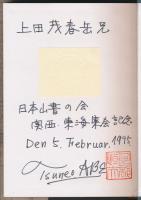 上田茂春岳兄
日本山書の会
関西・東海集会記念
Den 5. Februar. 1995
Tsuneo ABE